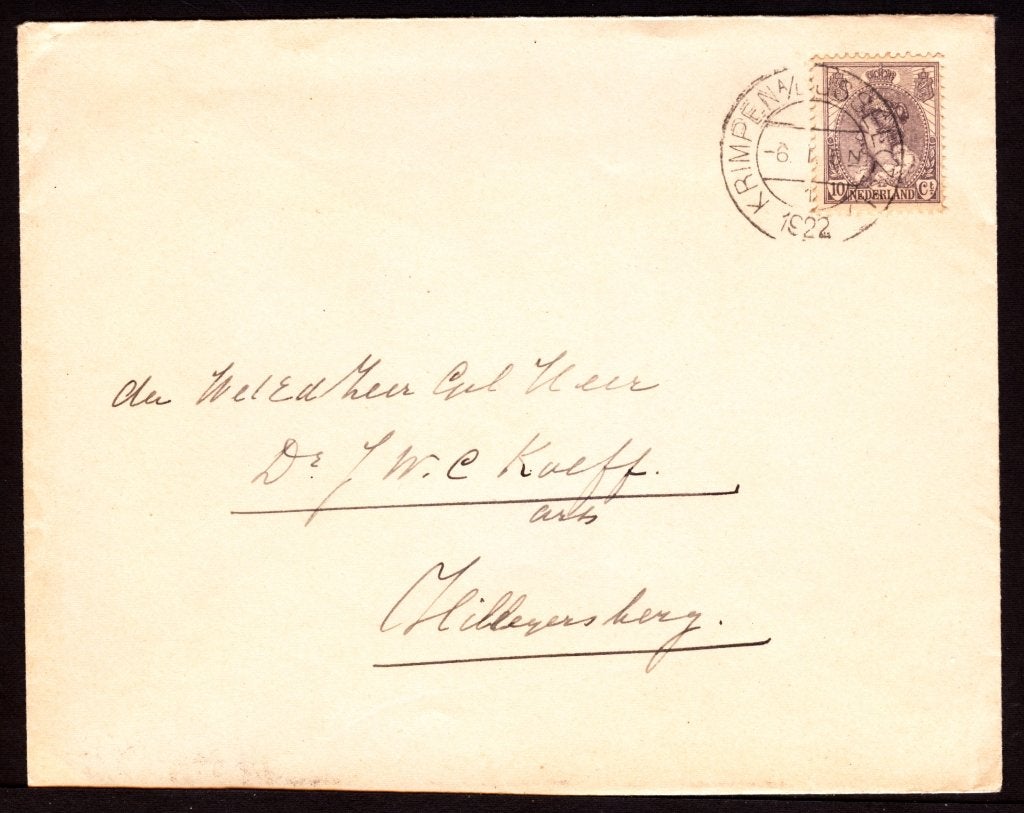 KRIMPEN A/D IJSSEL
-6.
1922
10 NEDERLAND Ct
den WelEdZeer Gel Heer
Dr J W. C Koeff.
arts
Hillegersberg.